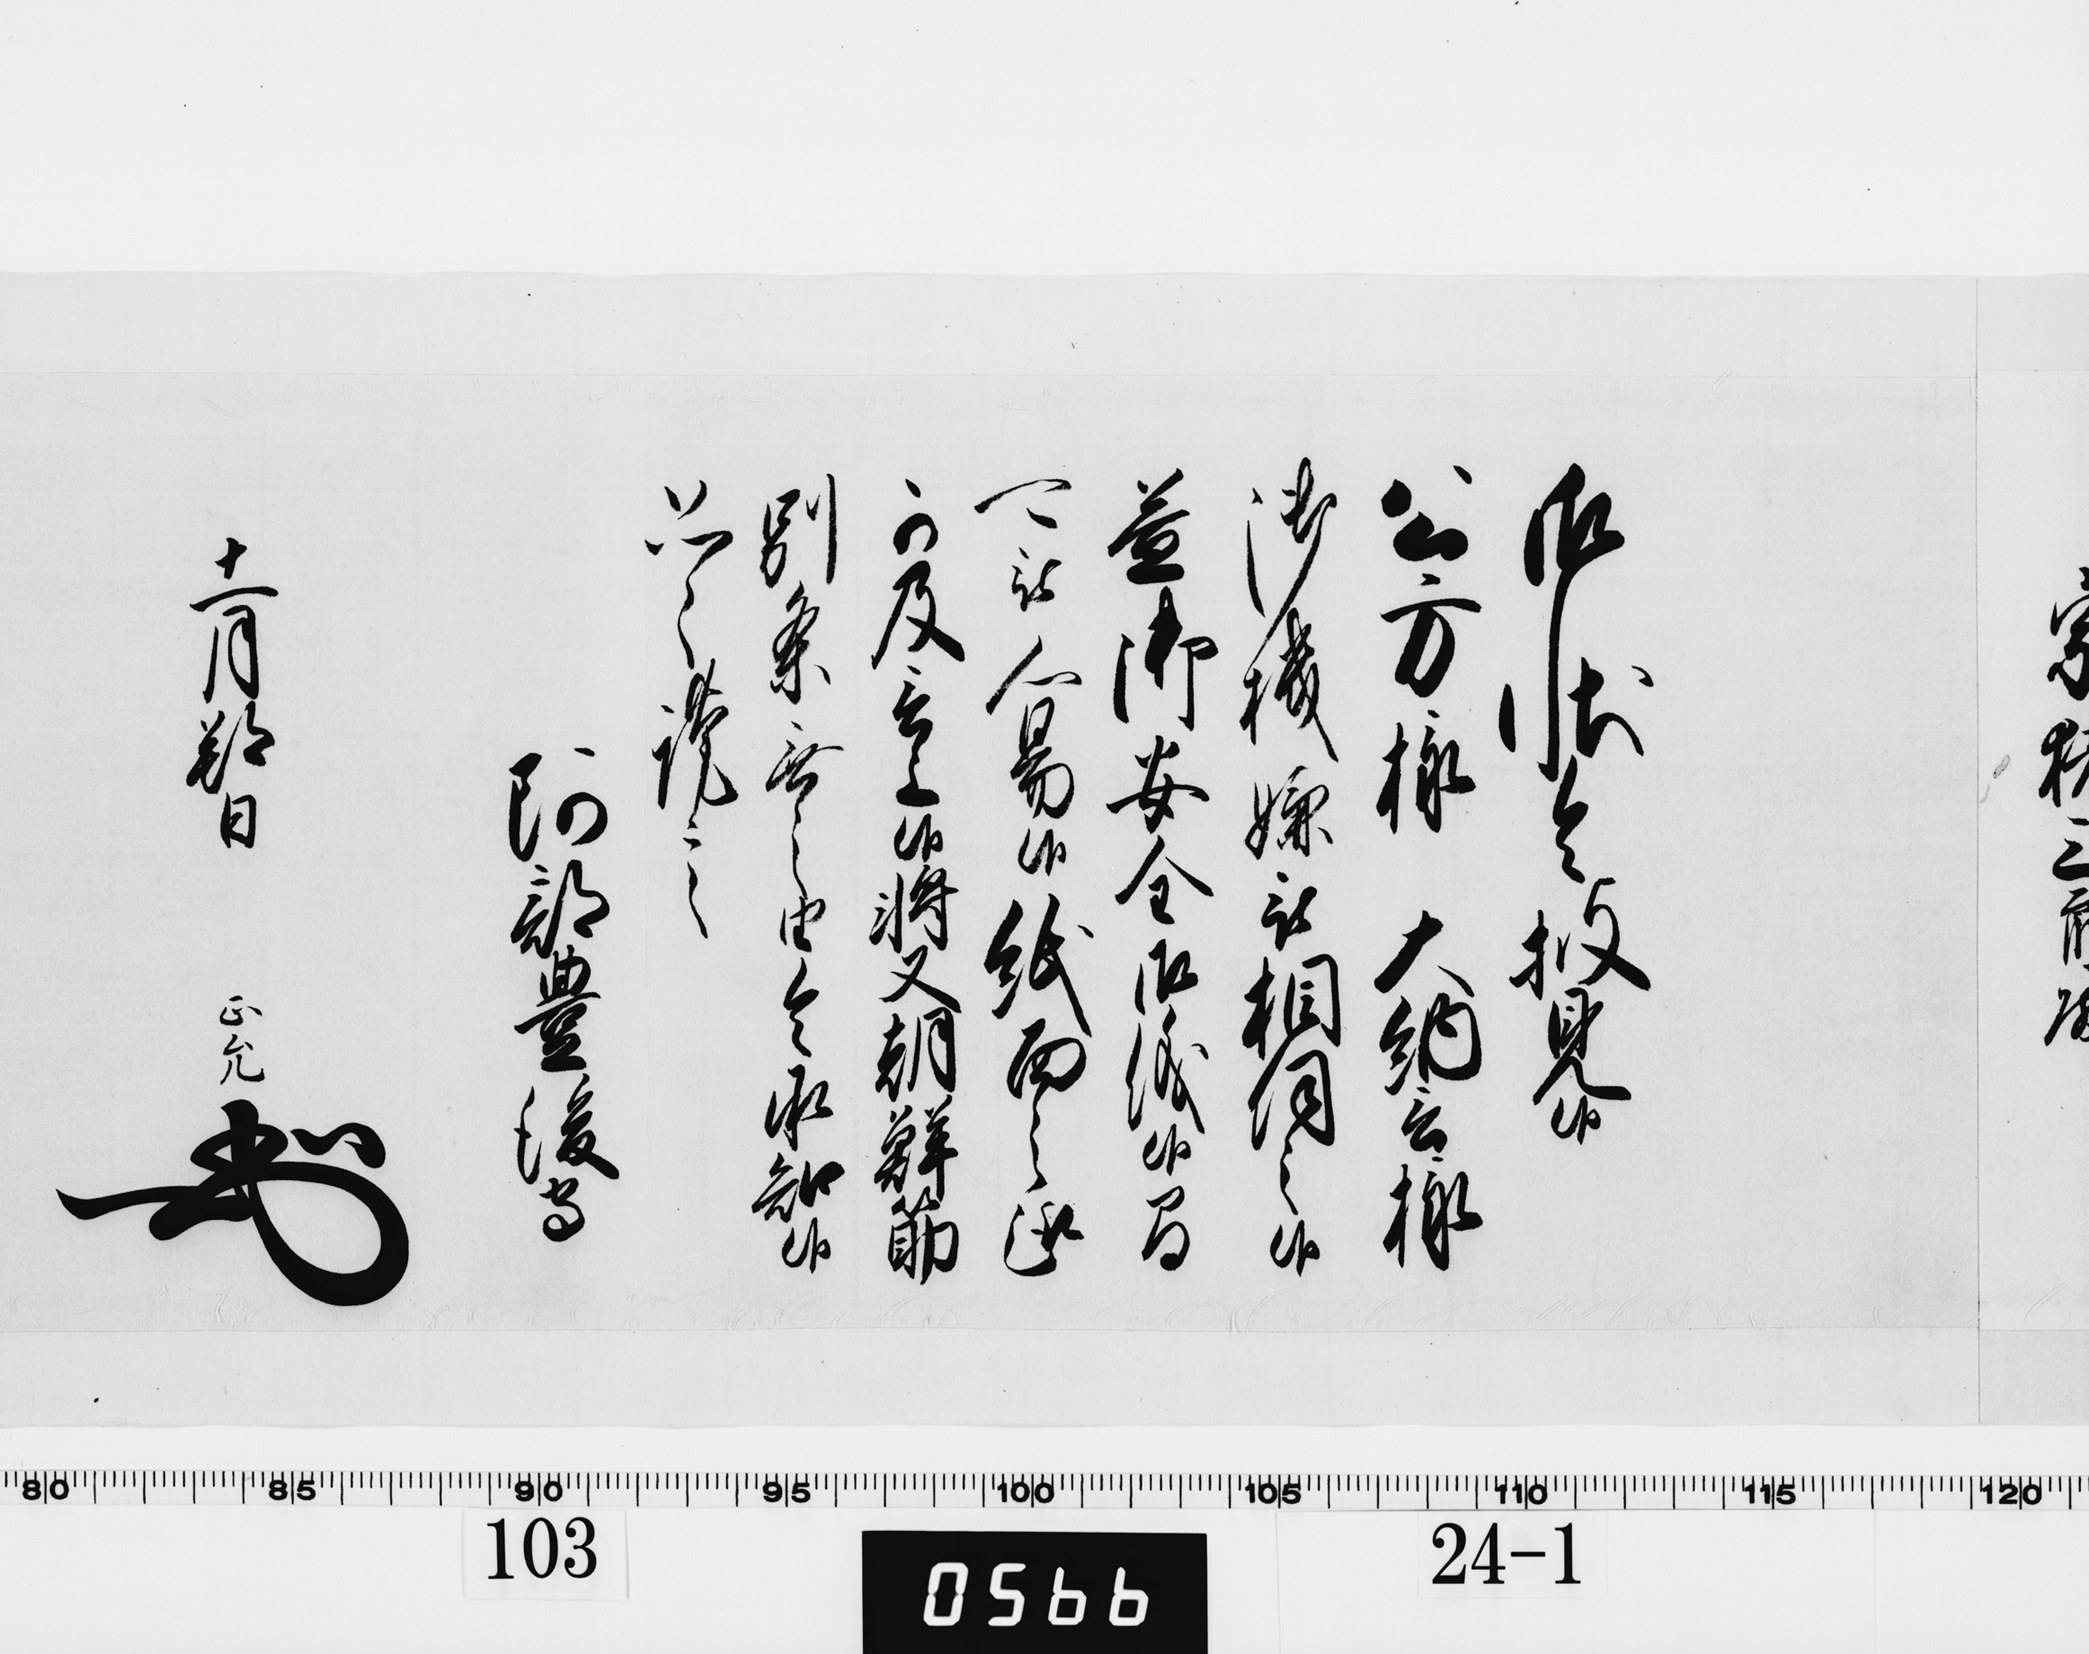 御状令披見候
公方様 大納言様
御機嫌被相伺之候
益御安全御儀候間
可被心易候紙面之趣
可及言上候将又朝鮮筋
別条無之由令承知候
恐々謹言
阿部豊後守
十一月朔日
正允
宗
三
80 85 90 95 100 105 110 115 120
103
0566
24-1